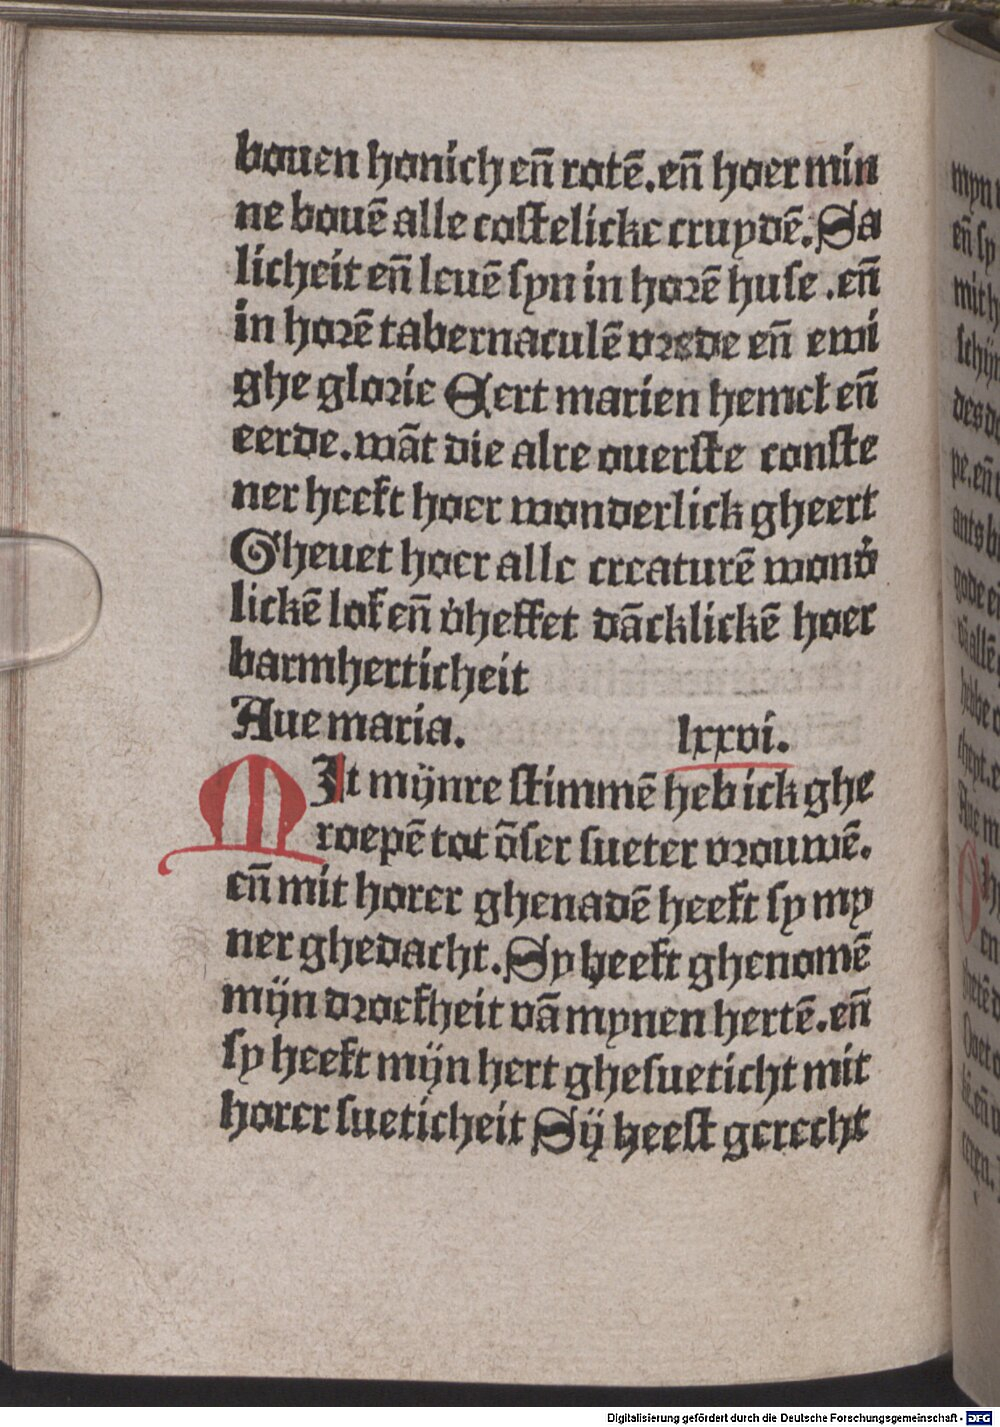 bouen honich en̄ rotē. en̄ hoer min
ne bouē alle costelicke cruydē. Sa
licheit en̄ leuē syn in horē huse .en̄
in horē tabernaculē vrede en̄ ewi
ghe glorie Eert marien hemel en̄
eerde. wāt die alre ouerste conste
ner heeft hoer wonderlick gheert
Gheuet hoer alle creaturē wond̓
lickē lof en̄ v̓heffet dācklickē hoer
barmherticheit
Aue maria. lxxvi.
MIt mÿnre stimmē heb ick ghe
roepē tot ōser sueter vrouwē.
en̄ mit horer ghenadē heeft sy my
ner ghedacht. Sy heeft ghenomē
mÿn drockheit vā mynen hertē. en̄
sy heeft mÿn hert ghesueticht mit
horer sueticheit Sÿ heest gerecht
Digitalisierung gefördert durch die Deutsche Forschungsgemeinschaft - DFG